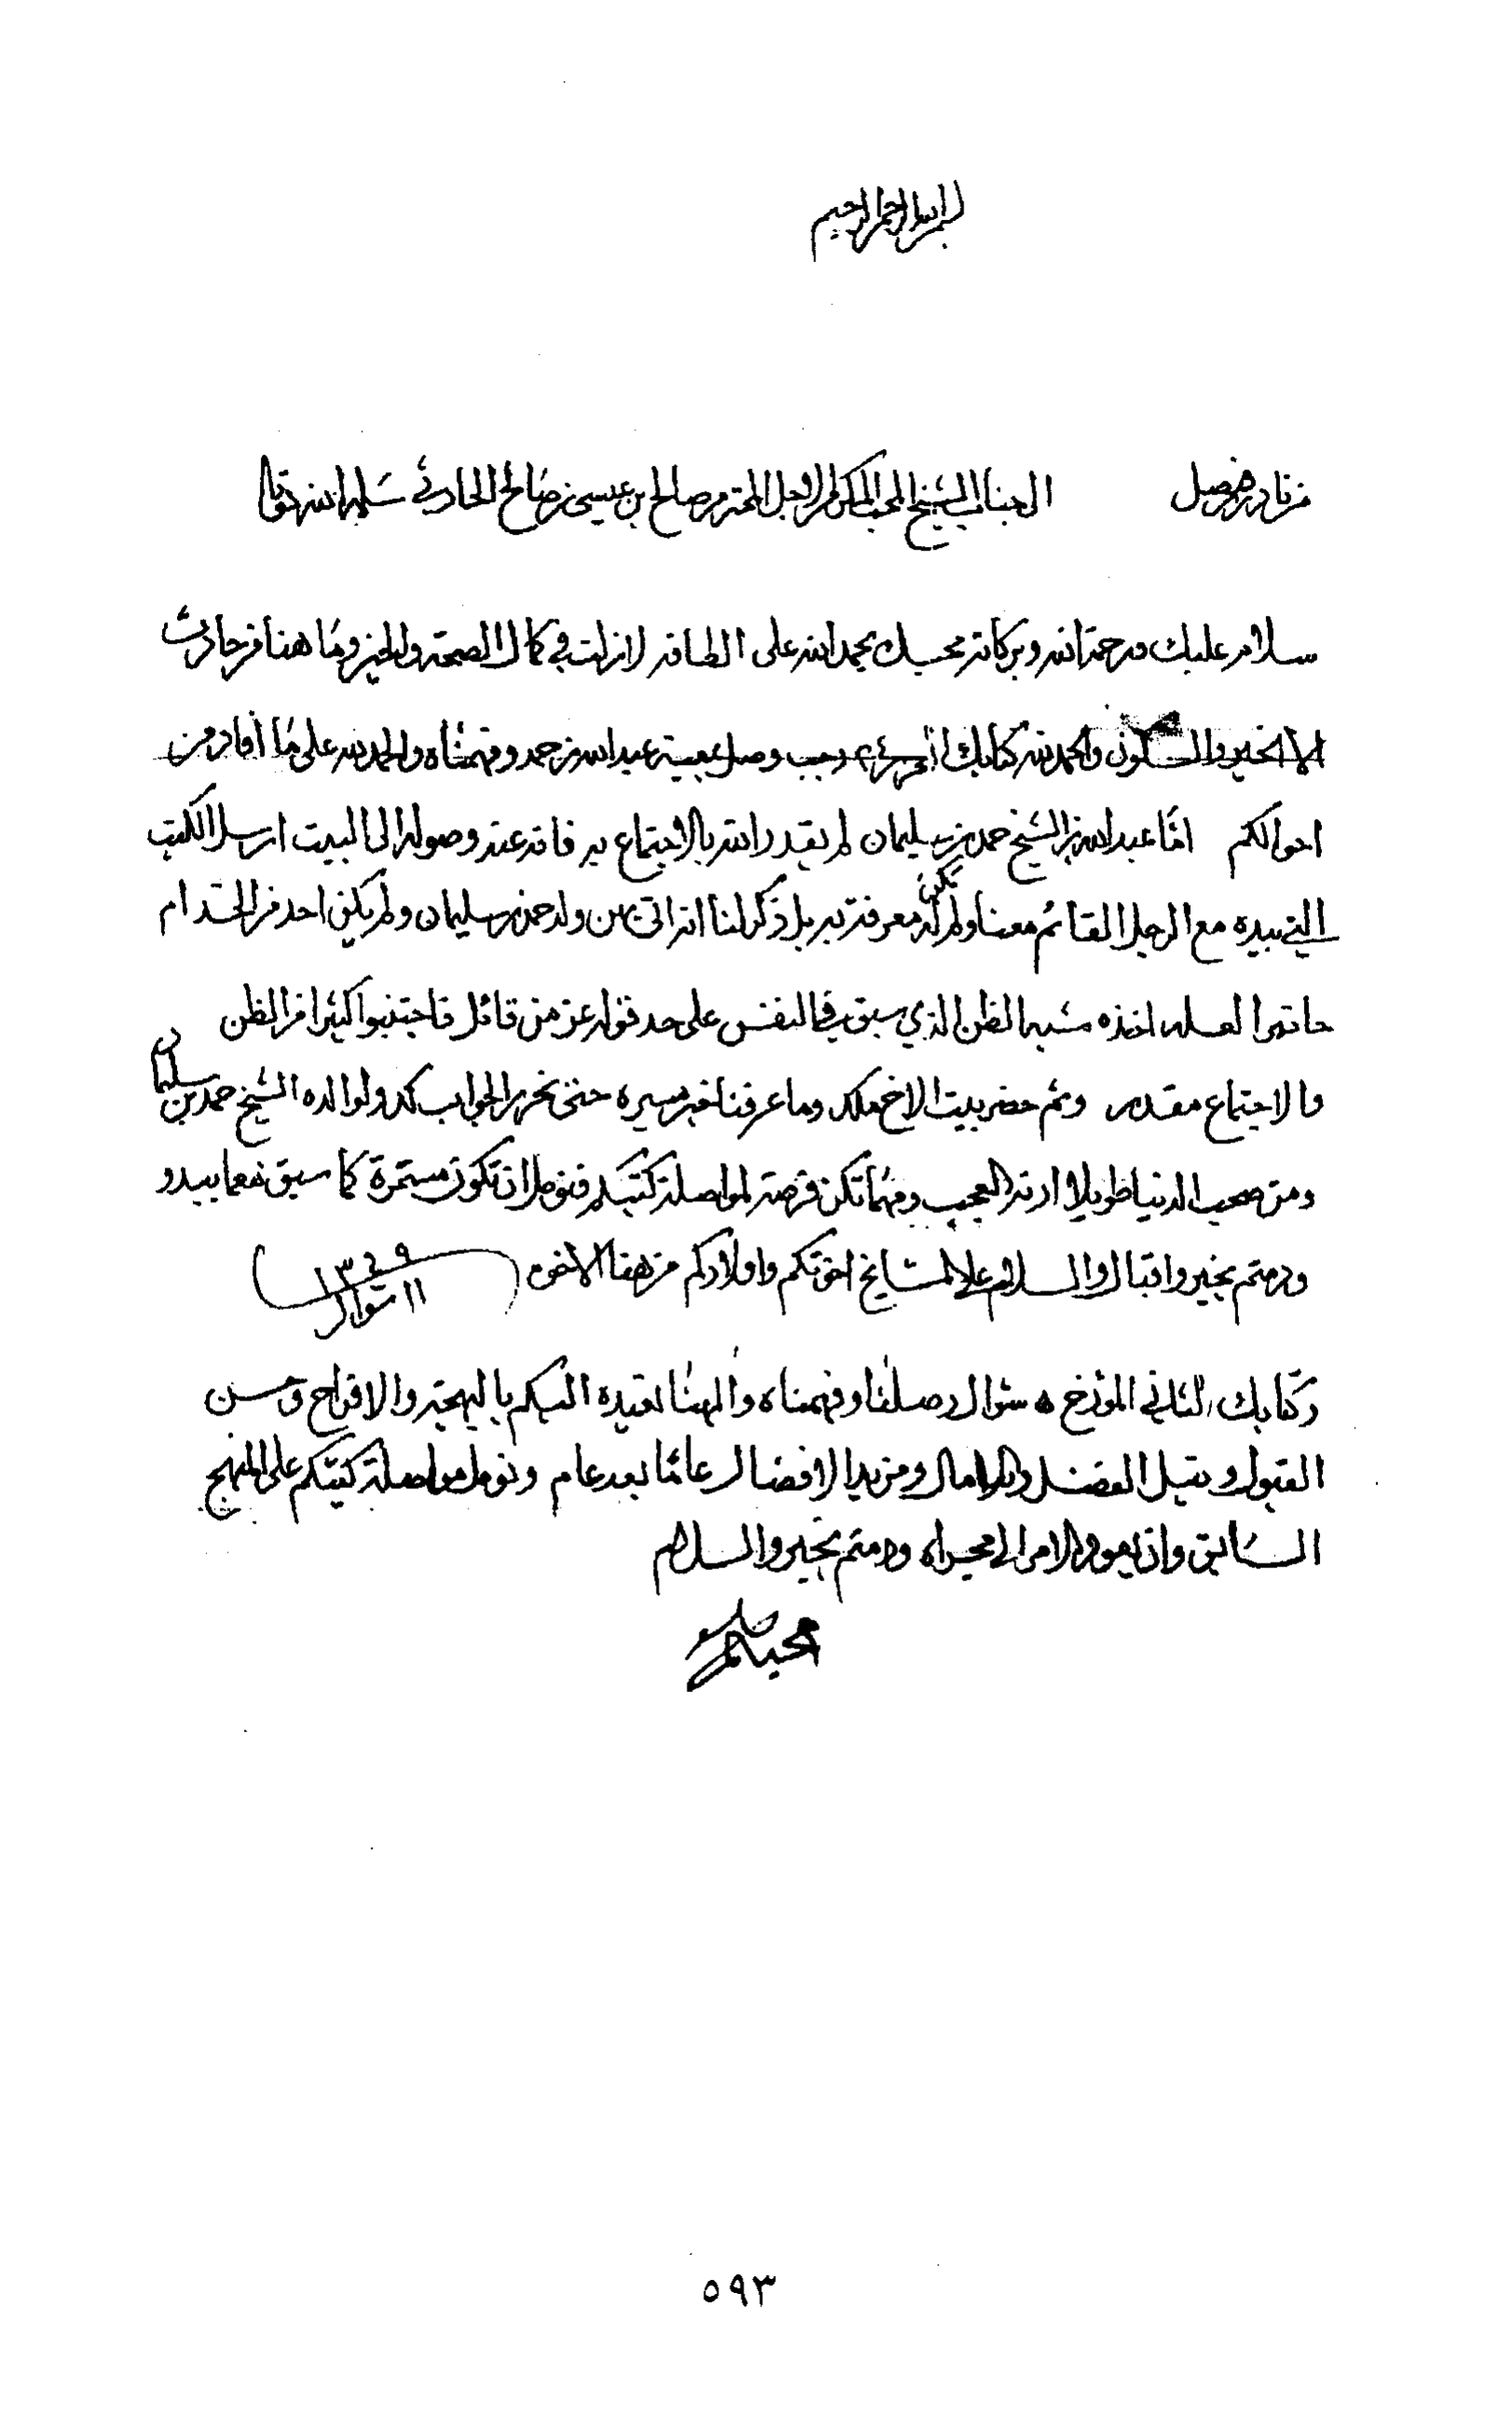 بسم الله الرحمن الرحيم
من نادر بن فيصل الى جناب الشيخ المحب المكرم الاجل المحترم صالح بن عيسى بن صالح الحارثي سلمه الله تعالى
سلام عليك ورحمة الله وبركاته محبك بحمد الله على الطافه لازلت في كمال الصحة والخير وما هنا من حادث
الا الخير والسكون والحمد لله كتابك رجب وصل بمعية عبدالله بن حمد وفهمناه والحمد لله على ما افاد من
احوالكم امّا عبدالله بن الشيخ حمد بن سليمان لم يقدر الله بالاجتماع به فانه عند وصوله الى البيت ارسل الكتب
التي بيده مع الرجل القائم معنا ولم تكن له معرفة به بل ذكر لنا انه اتى من ولد حمد بن سليمان ولم يكن احد من الخدام
حاضرا لعله اخذه شبه الظن الذي سبق في النفس على حد قوله عز من قائل فاجتنبوا كثيرا من الظن
والاجتماع مقدر وثم حضر بيت الاخ ملك وما عرفنا خبر مسيره حتى نحرر الجواب لكم ولوالده الشيخ حمد بن سليمان
ومن صحب الدنيا طويلا ارته العجب ومهما تكن فرصة لمواصلة كتبكم فنؤمل ان تكون مستمرة كما سبق فيما يبدو
ودمتم بخير واقبال والسلام على المشايخ اخوتكم واولادكم من هنا الاخوه
١١ شوال ١٣٦٩
وكتابك الثاني المؤرخ ٥ شوال وصلنا وفهمناه والهنا نعيده اليكم بالبهجة والافراح وحسن
القبول ونيل الفضل والامال ومزيد الافضال عامًا بعد عام ونؤمل مواصلة كتبكم على المنهج
السابق وان يعود الامر الى مجراه ودمتم بخير والسلام
محبكم
٥٩٣